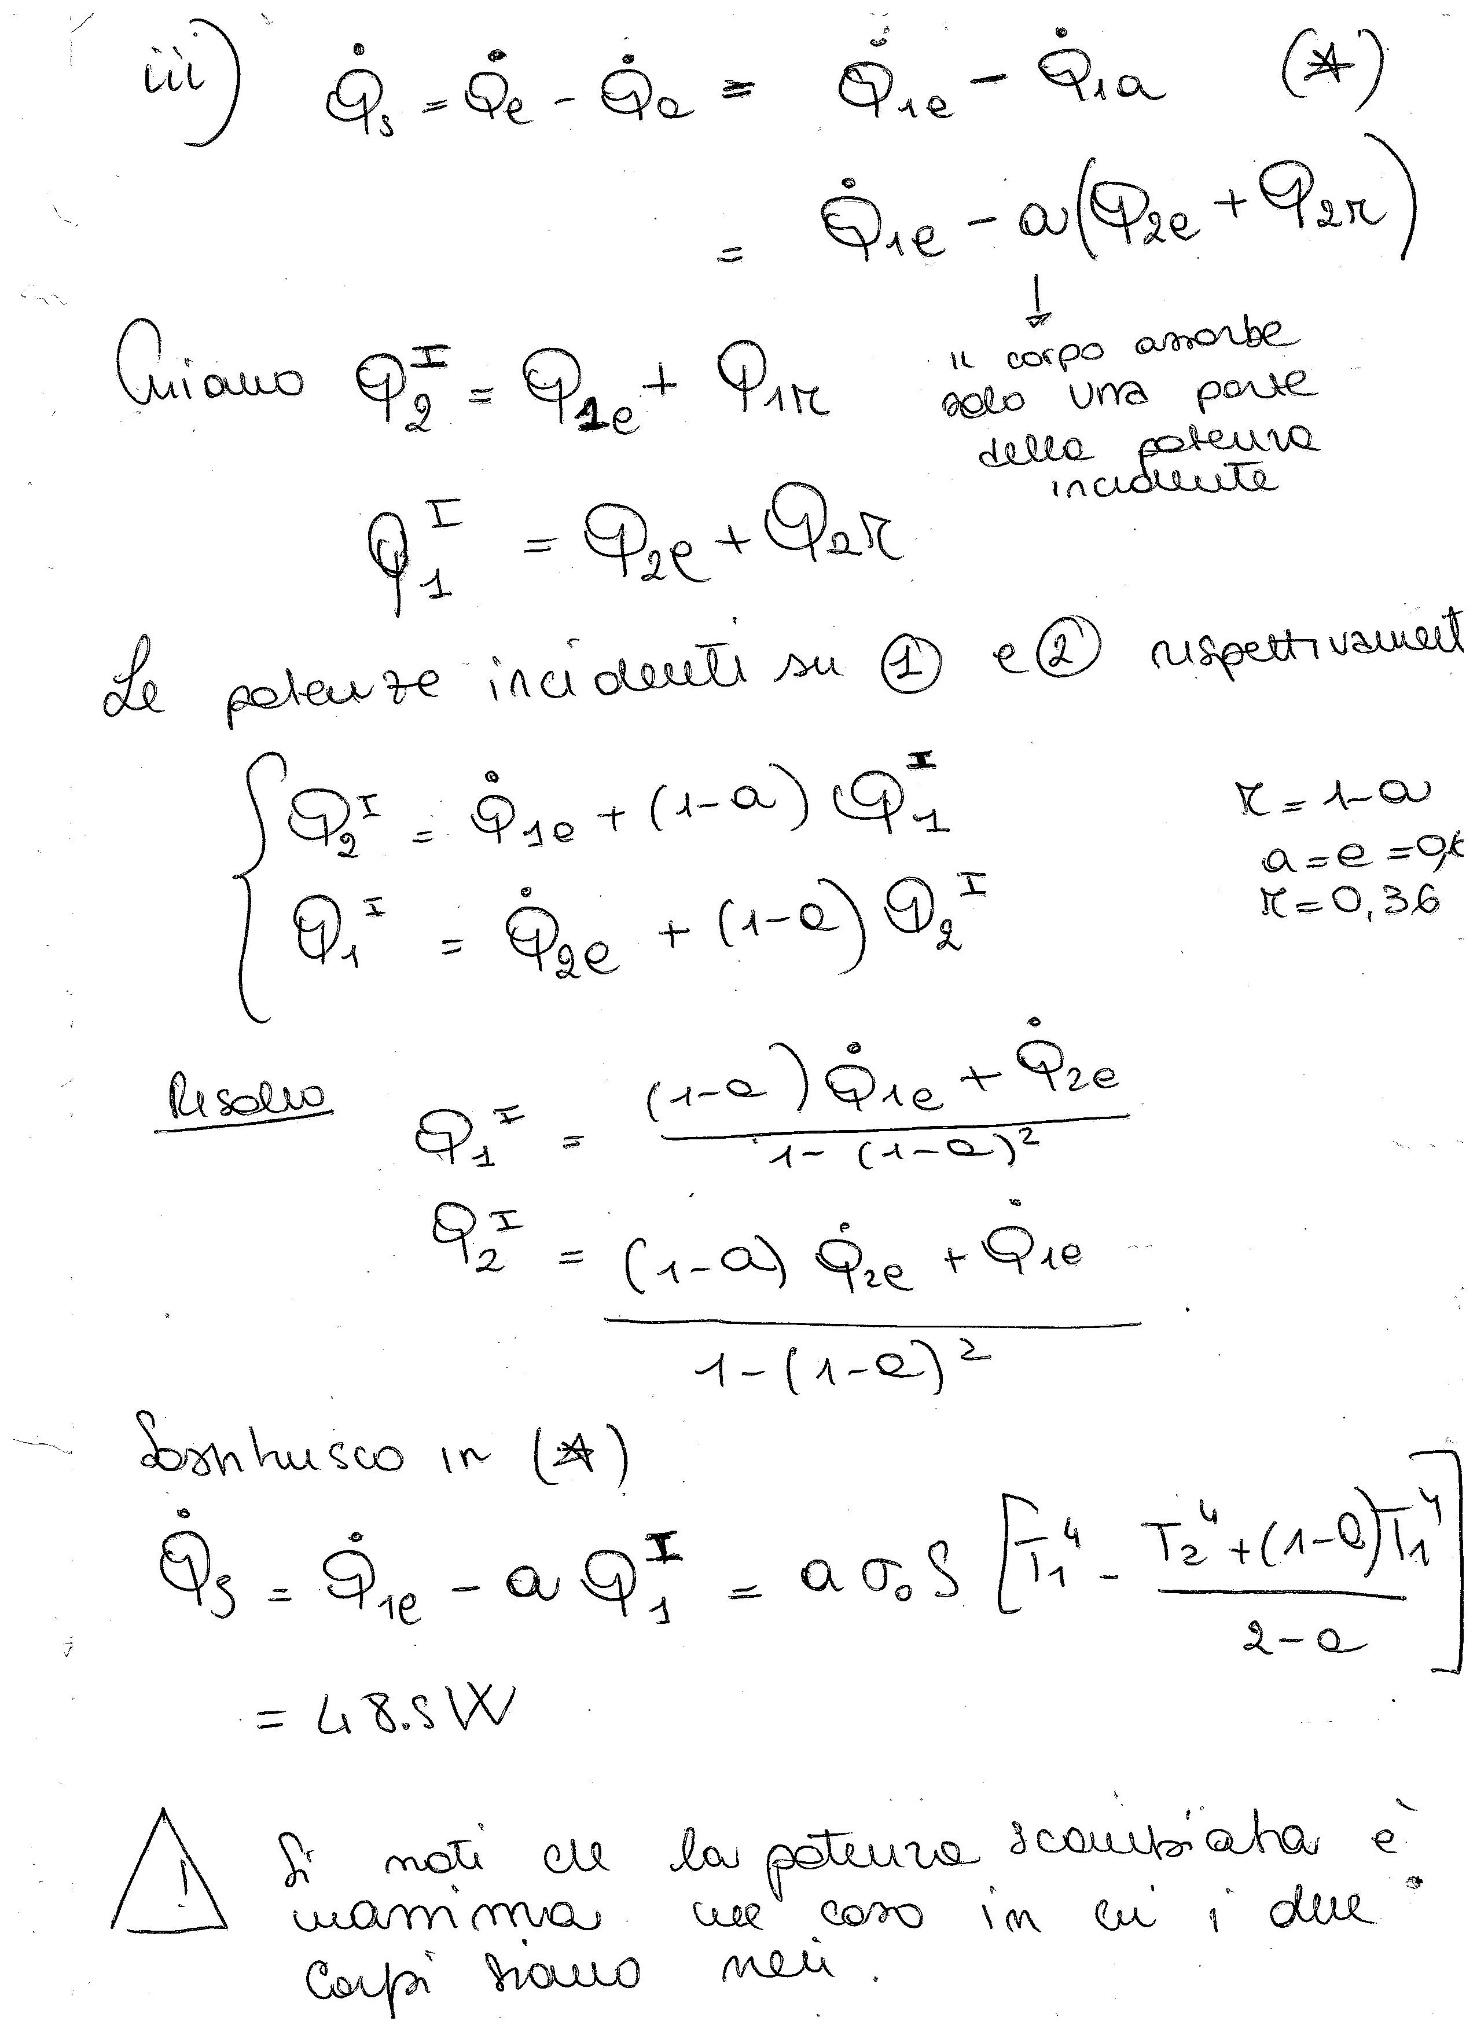 iii) Q̇s = Q̇e - Q̇a = Q̇1e - Q̇1a (*)
= Q̇1e - a(Q2e + Q2r)
↓
Chiamo Q2^I = Q1e + Q1r
il corpo assorbe
solo una parte
della potenza
incidente
Q1^I = Q2e + Q2r
Le potenze incidenti su ① e ② rispettivament
{ Q2^I = Q̇1e + (1-a) Q1^I
Q1^I = Q̇2e + (1-a) Q2^I
r = 1-a
a = e = 0,
r = 0,36
Risolvo Q1^I = ((1-a) Q̇1e + Q̇2e) / (1-(1-a)^2)
Q2^I = ((1-a) Q̇2e + Q̇1e) / (1-(1-a)^2)
Sostituisco in (*)
Q̇s = Q̇1e - a Q1^I = a σ0 S [T1^4 - (T2^4 + (1-a)T1^4) / (2-a)]
= 48.5W
! Si noti che la potenza scambiata è
massima nel caso in cui i due
corpi siano neri.